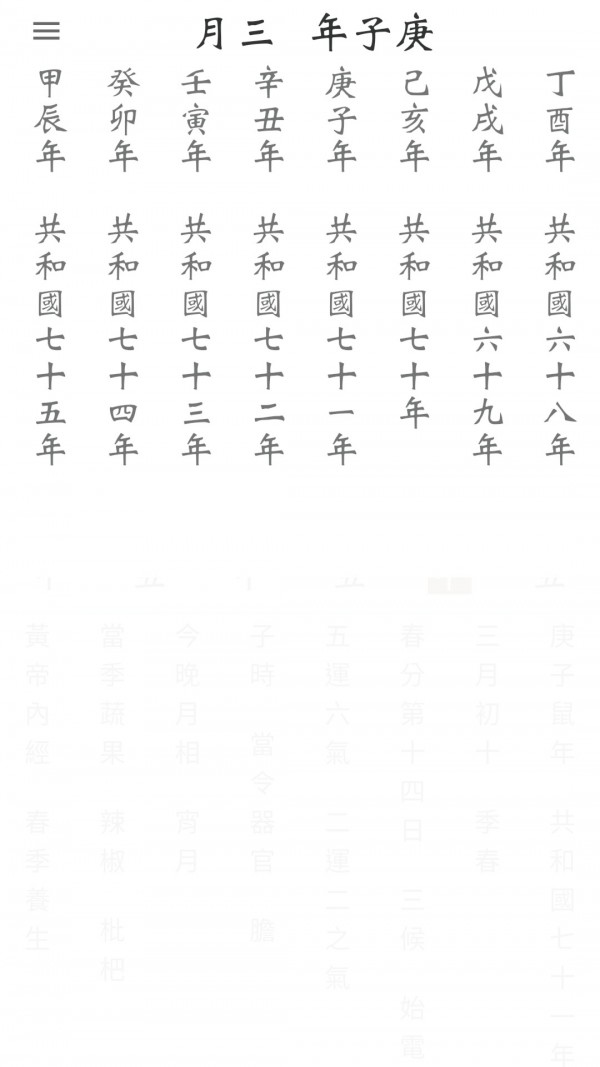 庚子年 三月
丁酉年 共和國六十八年
戊戌年 共和國六十九年
己亥年 共和國七十年
庚子年 共和國七十一年
辛丑年 共和國七十二年
壬寅年 共和國七十三年
癸卯年 共和國七十四年
甲辰年 共和國七十五年
庚子鼠年 共和國七十一年
三月初十 季春
春分第十四日 三候 始電
五運六氣 二運二之氣
子時 當令器官 膽
今晚月相 宵月
當季蔬果 辣椒 枇杷
黃帝內經 春季養生